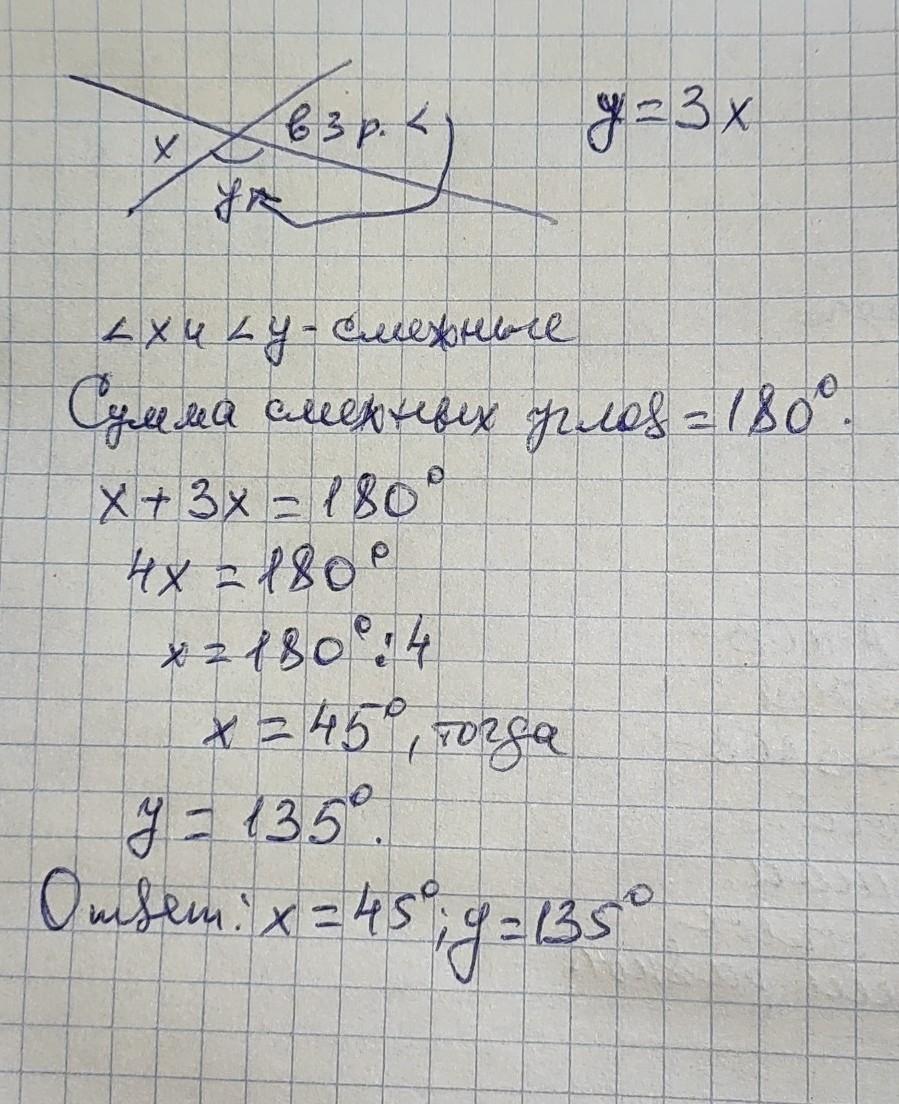 в 3 р. <
y = 3x
x
y
∠x и ∠y - смежные
Сумма смежных углов = 180°.
x + 3x = 180°
4x = 180°
x = 180° : 4
x = 45°, тогда
y = 135°.
Ответ: x = 45°; y = 135°